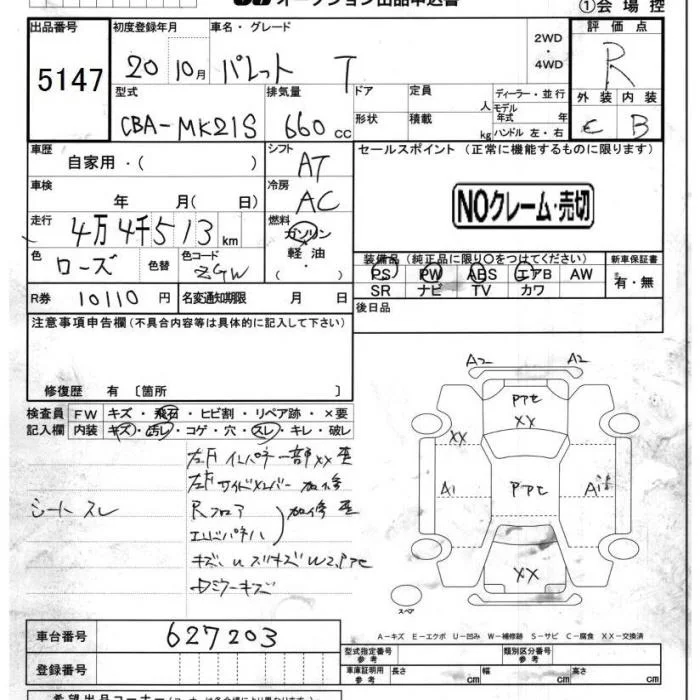 オークション出品申込書
①会場控
出品番号 初度登録年月 車名・グレード 評価点
5147
20 10月 パレット T
2WD
・
4WD
R
型式 排気量 ドア 定員 人 ディーラー・並行
外装 内装
CBA-MK21S 660cc
形状 積載 kg
モデル年式 年
ハンドル 左・右
C B
車歴 自家用・( )
シフト AT
セールスポイント (正常に機能するものに限ります)
車検 年 月( 日)
冷房 AC
NOクレーム・売切
走行 4万4千513km
燃料 ガソリン
軽油
・( )
色 ローズ 色替 色コード ZGW
装備品 (純正品に限り〇をつけてください) 新車保証書
PS PW ABS エアB AW
有・無
SR ナビ TV カワ
R券 10110円 名変通知期限 月 日
後日品
注意事項申告欄(不具合内容等は具体的に記入して下さい)
修復歴 有 〔箇所 〕
検査員 FW キズ・飛石・ヒビ割・リペア跡・×要
記入欄 内装 キズ・汚レ・コゲ・穴・スレ・キレ・破レ
A2 A2
XX
XX
A1
XX
シート スレ
Rフロア
スペア
A-キズ E-エクボ U-凹み W-補修跡 S-サビ C-腐食 XX-交換済
車台番号 627203
型式指定番号 参考 類別区分番号 参考
登録番号
車庫証明用 参考 長さ cm 幅 cm 高さ cm
希望出品コーナー